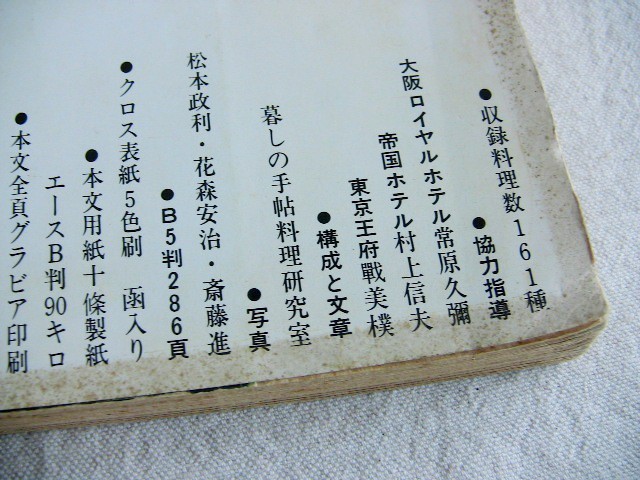 ●収録料理数161種
●協力指導
大阪ロイヤルホテル常原久彌
帝国ホテル村上信夫
東京王府戰美樸
●構成と文章
暮しの手帖料理研究室
●写真
松本政利・花森安治・斎藤進
●B5判286頁
●クロス表紙5色刷　函入り
●本文用紙十條製紙
エースB判90キロ
●本文全頁グラビア印刷